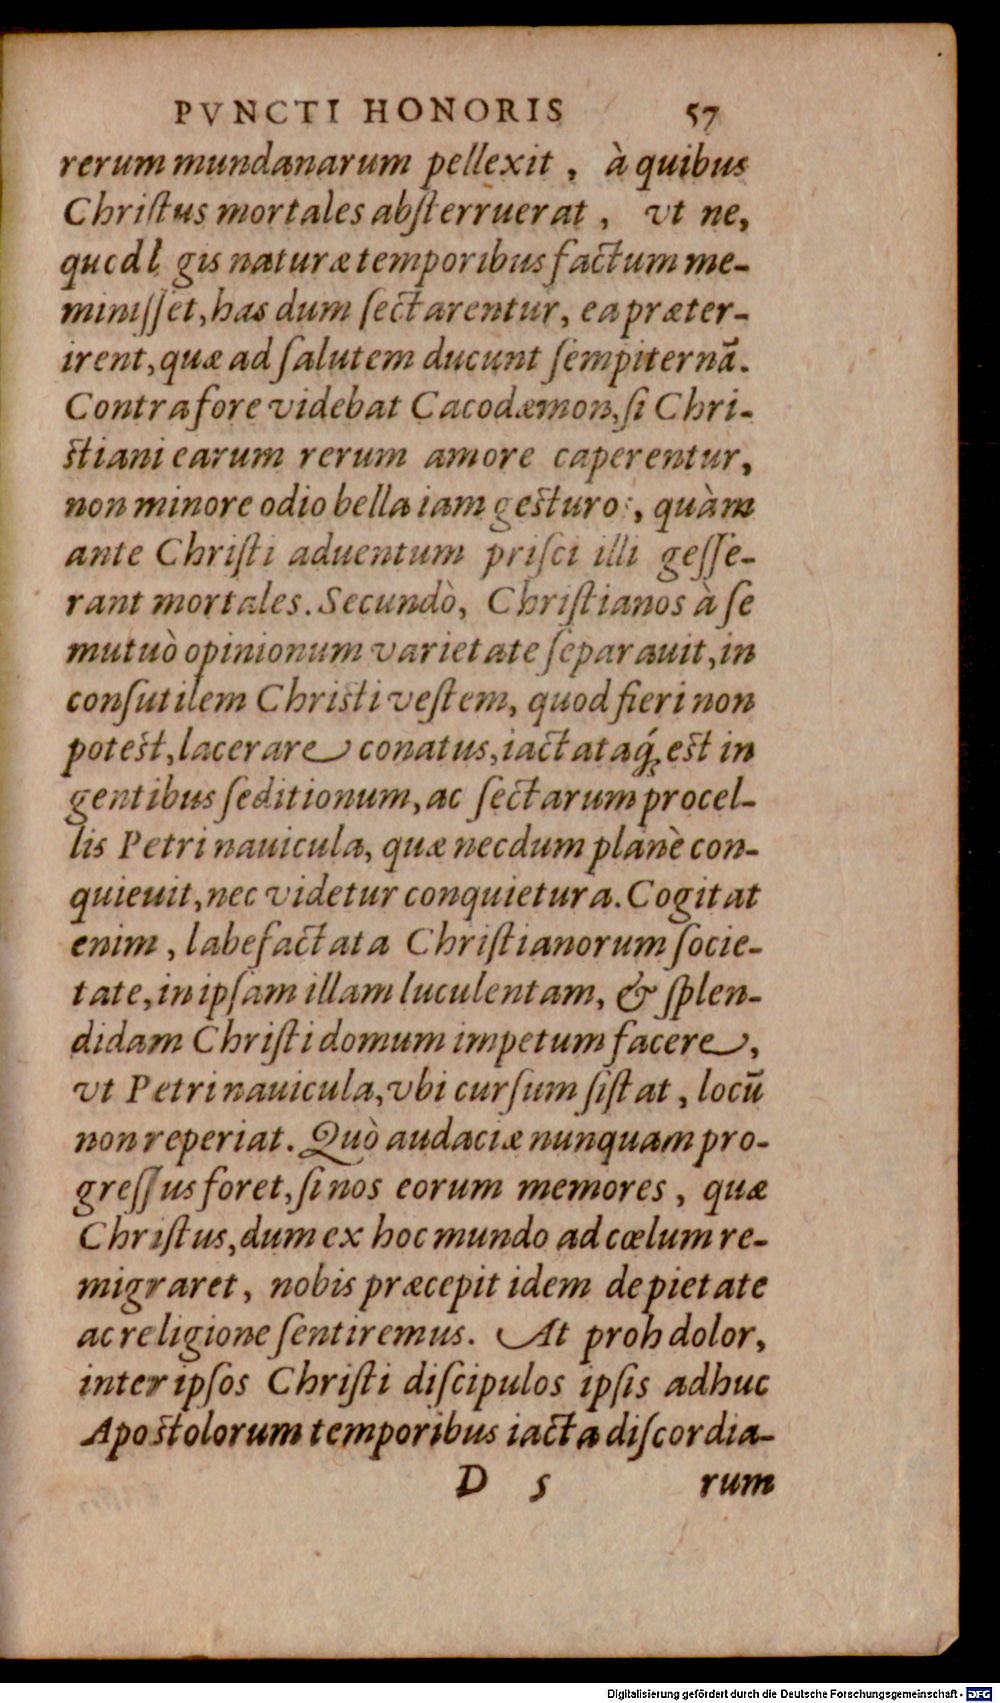 PVNCTI HONORIS 57
rerum mundanarum pellexit, à quibus
Christus mortales absterruerat, vt ne,
qucd l gis naturæ temporibus factum me-
minisset, has dum sectarentur, ea præter-
irent, quæ ad salutem ducunt sempiternã.
Contra fore videbat Cacodæmon, si Chri-
stiani earum rerum amore caperentur,
non minore odio bella iam gesturos, quàm
ante Christi aduentum prisci illi gesse-
rant mortales. Secundò, Christianos à se
mutuò opinionum varietate separauit, in
consutilem Christi vestem, quod fieri non
potest, lacerare conatus, iactataq́; est in
gentibus seditionum, ac sectarum procel-
lis Petri nauicula, quæ necdum planè con-
quieuit, nec videtur conquietura. Cogitat
enim, labefactata Christianorum socie-
tate, in ipsam illam luculentam, & splen-
didam Christi domum impetum facere,
vt Petri nauicula, vbi cursum sistat, locũ
non reperiat. Quò audaciæ nunquam pro-
gressus foret, si nos eorum memores, quæ
Christus, dum ex hoc mundo ad cœlum re-
migraret, nobis præcepit idem de pietate
ac religione sentiremus. At proh dolor,
inter ipsos Christi discipulos ipsis adhuc
Apostolorum temporibus iacta discordia-
D 5 rum
Digitalisierung gefördert durch die Deutsche Forschungsgemeinschaft - DFG